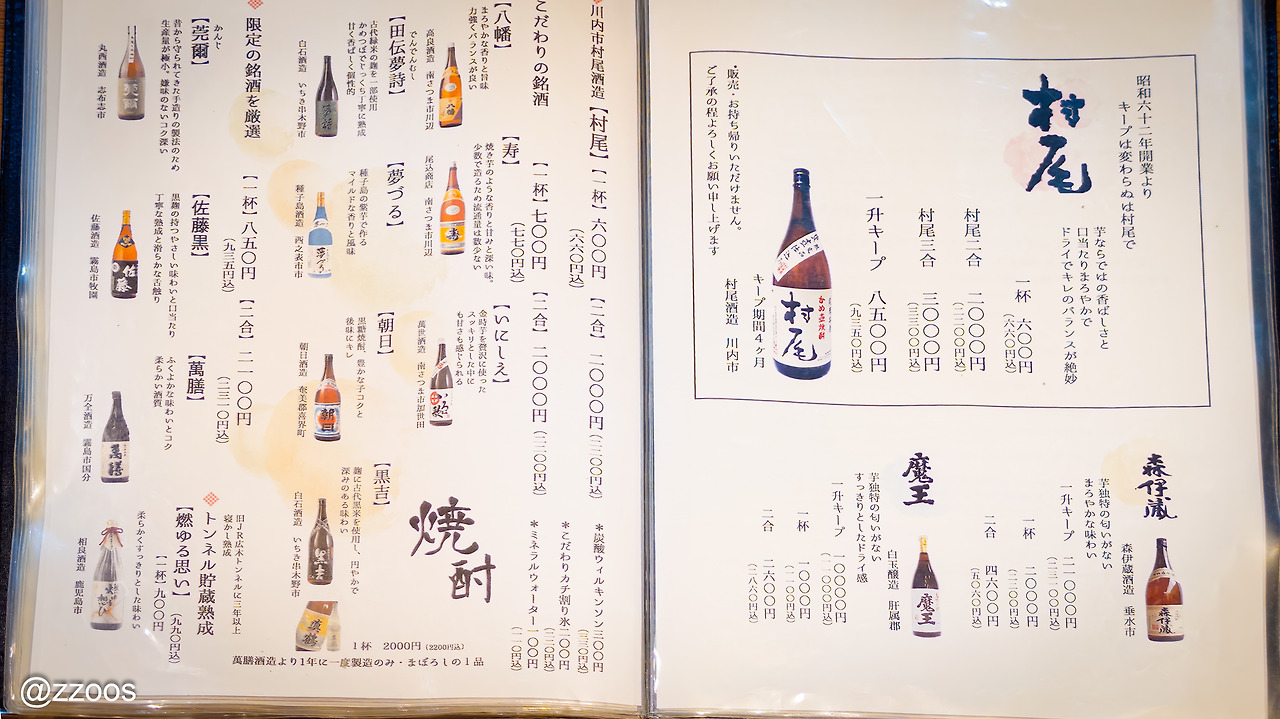 昭和六十二年開業より
キープは変わらぬは村尾で
村尾
芋ならではの香ばしさと
口当たりまろやかで
ドライでキレのバランスが絶妙
一杯 六〇〇円
(六六〇円込)
村尾二合 二〇〇〇円
(二二〇〇円込)
村尾三合 三〇〇〇円
(三三〇〇円込)
一升キープ 八五〇〇円
(九三五〇円込)
村尾
キープ期間4ヶ月
村尾酒造 川内市
・販売・お持ち帰りいただけません。
ご了承の程よろしくお願い申し上げます
森伊蔵
森伊蔵
森伊蔵酒造 垂水市
芋独特の匂いがない
まろやかな味わい
一升キープ 二一〇〇〇円
(二三一〇〇円込)
一杯 二〇〇〇円
(二二〇〇円込)
二合 四六〇〇円
(五〇六〇円込)
魔王
魔王
白玉醸造 肝属郡
芋独特の匂いがない
すっきりとしたドライ感
一升キープ 一〇〇〇〇円
(一一〇〇〇円込)
一杯 一〇〇〇円
(一一〇〇円込)
二合 二六〇〇円
(二八六〇円込)
川内市村尾酒造【村尾】【一杯】六〇〇円
(六六〇円込)
【二合】二〇〇〇円
(二二〇〇円込)
*炭酸ウィルキンソン 三〇〇円
(三三〇円込)
こだわりの銘酒
【一杯】七〇〇円
(七七〇円込)
【二合】二〇〇〇円
(二二〇〇円込)
*こだわりカチ割り氷 二〇〇円
(二二〇円込)
*ミネラルウォーター 一〇〇円
(一一〇円込)
【八幡】
まろやかな香りと旨味
力強くバランスが良い
高良酒造 南さつま市川辺
【寿】
焼き芋のような香りと甘みと深い味。
少数で造るため流通量は数少ない
尾込商店 南さつま市川辺
【いにしえ】
金時芋を贅沢に使った
スッキリとした中に
も甘さも感じられる
萬世酒造 南さつま市加世田
焼酎
でんでんむし
【田伝夢詩】
古代緑米の麹を一部使用
かめつぼでじっくり丁寧に熟成
甘く香ばしく個性的
白石酒造 いちき串木野市
【夢づる】
種子島の紫芋で作る
マイルドな香りと風味
種子島酒造 西之表市
【朝日】
黒糖焼酎 豊かなコクと
後味にキレ
朝日酒造 奄美郡喜界町
【黒吉】
麹に古代黒米を使用し、円やかで
深みのある味わい
白石酒造 いちき串木野市
真鶴
1杯 2000円(2200円込)
萬膳酒造より1年に一度製造のみ・まぼろしの1品
限定の銘酒を厳選
【一杯】八五〇円
(九三五円込)
【二合】二一〇〇円
(二三一〇円込)
かんじ
【莞爾】
昔から守られてきた手造りの製法のため
生産量が極小。嫌味のないコク深い
丸西酒造 志布志市
【佐藤黒】
黒麹の持つやさしい味わいと口当たり
丁寧な熟成と滑らかな舌触り
佐藤酒造 霧島市牧園
【萬膳】
ふくよかな味わいとコク
柔らかい酒質
万全酒造 霧島市国分
トンネル貯蔵熟成
旧JR広木トンネルに三年以上
寝かし熟成
【燃ゆる思い】
【一杯】九〇〇円
(九九〇円込)
柔らかくすっきりとした味わい
相良酒造 鹿児島市
@zzoos